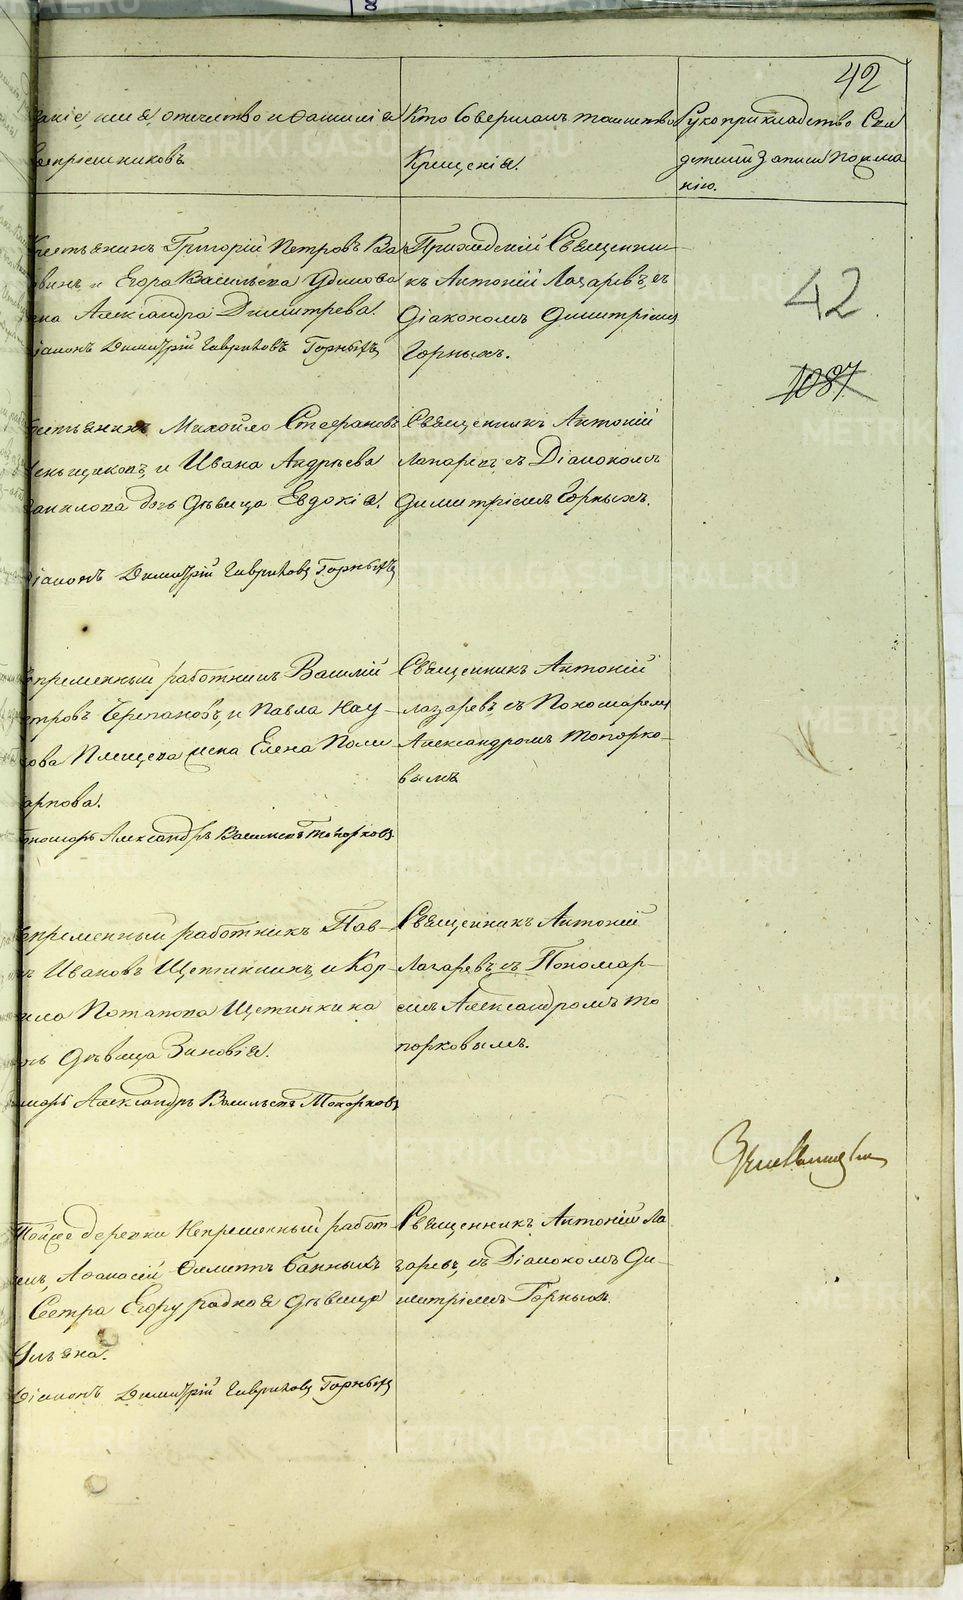 42
имя, отечество и фамилія
воспріемниковъ.
Кто совершалъ таинство
Крещенія.
Рукоприкладство Сви
детелей записи по жела
нію.
Крестьянинъ Григорій Петровъ Ва
и Егора Васильева
жена Александра Димитрева.
Діаконъ Димитрій Гавриловъ Горныхъ
Приходскій Священни
къ Антоній Лазаревъ, съ
Діакономъ Димитріемъ
Горныхъ.
42
1087
Крестьянинъ Михайло Стефановъ
и Ивана Андрѣева
Данилова дочь дѣвица Евдокія.
Діаконъ Димитрій Гавриловъ Горныхъ
Священникъ Антоній
Лазаревъ, съ Діакономъ
Димитріемъ Горныхъ.
Непременный работникъ Василій
Петровъ Черепановъ, и Павла Нау
мова жена Елена Поли
карпова.
Пономарь Александръ Васильевъ Топорковъ
Священникъ Антоній
Лазаревъ, съ Пономаремъ
Александромъ Топорко
вымъ
Непременный работникъ Пав
лъ Ивановъ Щетинникъ, и Кор
нила Потапова Щетинкина
дочь дѣвица Зиновія.
Пономарь Александръ Васильевъ Топорковъ
Священникъ Антоній
Лазаревъ, съ Пономар
емъ Александромъ То
порковымъ.
Тойже деревни Непременный работ
никъ, Афанасій Банныхъ
Сестра Егору родная дѣвица
Ульяна.
Діаконъ Димитрій Гавриловъ Горныхъ
Священникъ Антоній Ла
заревъ, съ Діакономъ Ди
митріемъ Горныхъ.
METRIKI.GASO-URAL.RU